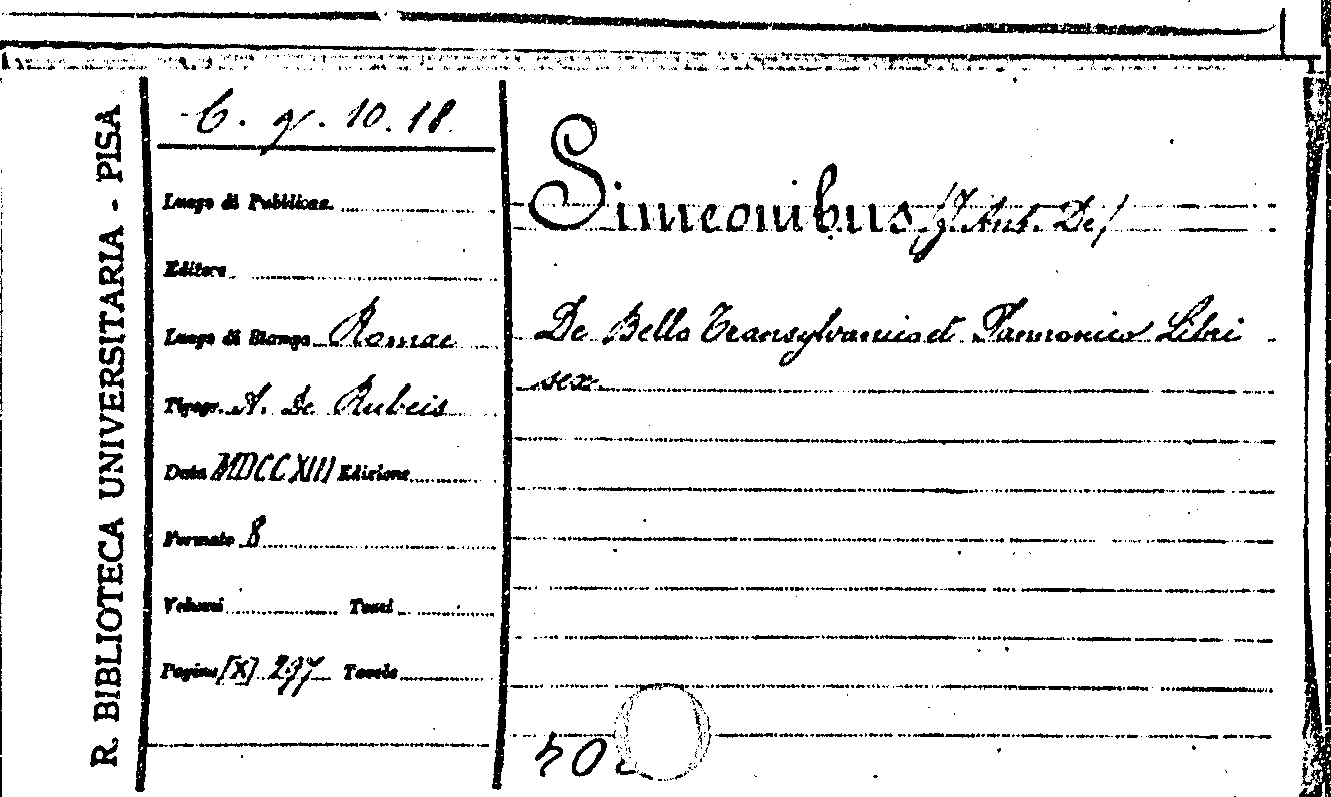 R. BIBLIOTECA UNIVERSITARIA - PISA
C. g. 10. 18
Luogo di Pubblicaz.
Editore
Luogo di Stampa Romae
Tipogr. A. De Rubeis
Data MDCCXIII Edizione
Formato 8
Volumi Tomi
Pagine [X] 297 Tavole
Simeonibus (J. Ant. De)
De Bello Transylvanico et Pannonico Libri
sex